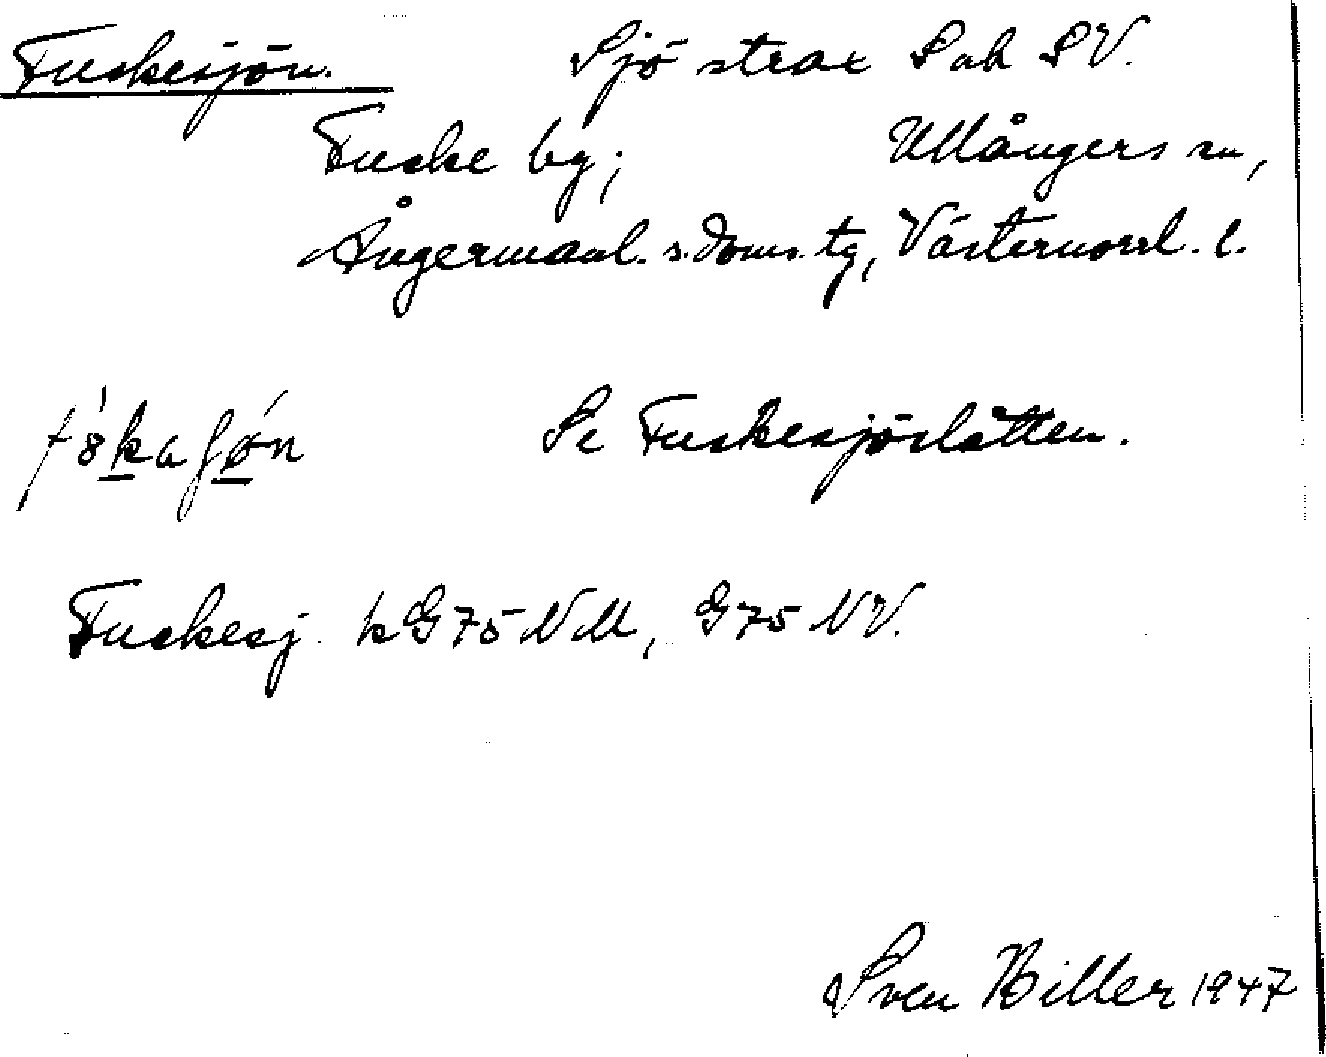 Fuskesjön. Sjö strax S och SV.
Fuske by; Ullångers sn,
Ångermanl. s. doms. tg, Västernorrl. l.
Se Fuskesjöslåtten.
Fuskesj. kG75NM, G75NV.
Sven Hiller 1947